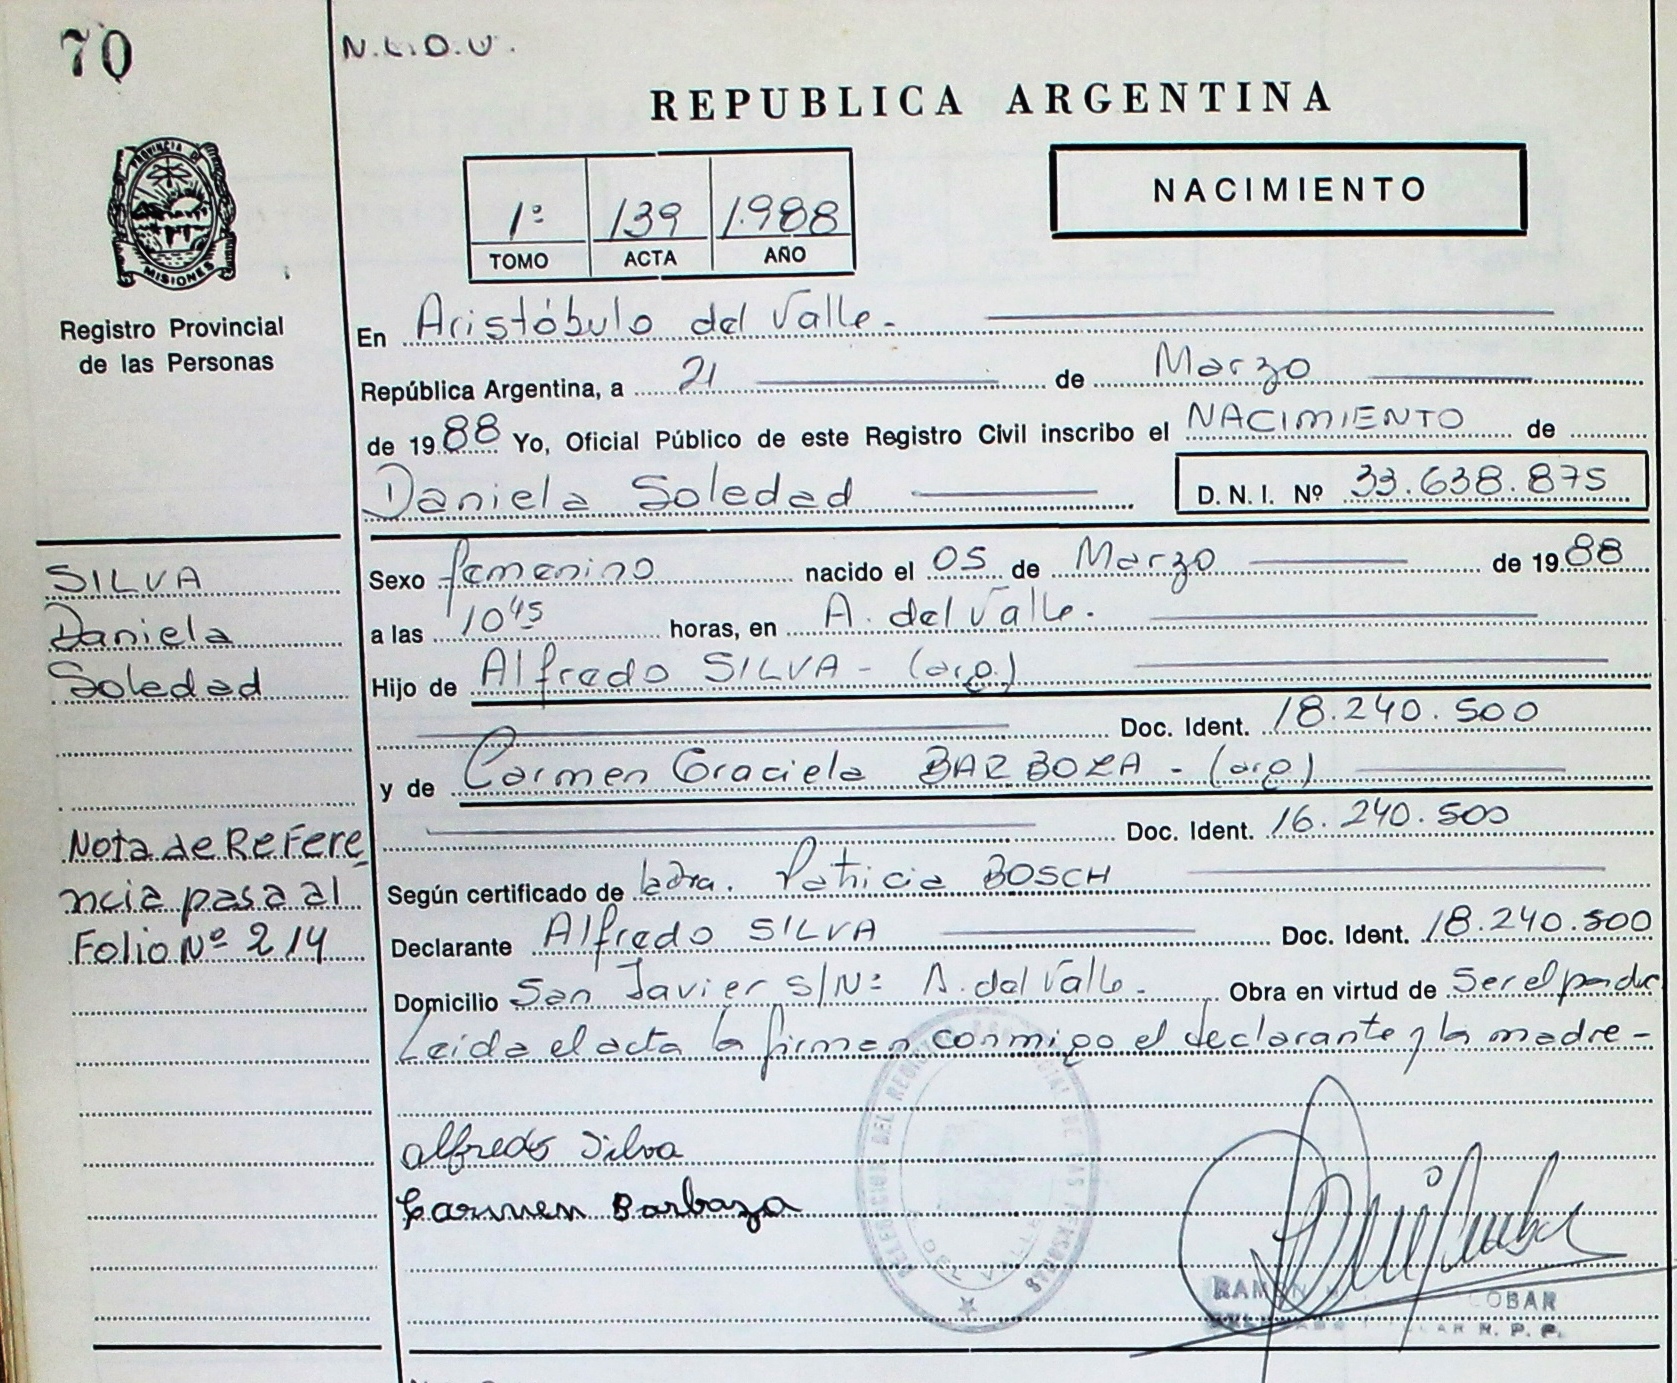 70
N.L.O.U.
REPUBLICA ARGENTINA
PROVINCIA DE
MISIONES
Registro Provincial
de las Personas
1º 139 1.988
TOMO ACTA AÑO
NACIMIENTO
En Aristóbulo del Valle.-
República Argentina, a 21 de Marzo
de 1988 Yo, Oficial Público de este Registro Civil inscribo el NACIMIENTO de
Daniela Soledad D.N.I. Nº 33.638.875
SILVA
Daniela
Soledad
Sexo femenino nacido el 05 de Marzo de 1988
a las 10 45 horas, en A. del Valle.
Hijo de Alfredo SILVA - (arg.)
Doc. Ident. 18.240.500
y de Carmen Graciela BARBOZA - (arg)
Doc. Ident. 16.240.500
Nota de Refere
ncia pasa al
Folio Nº 214
Según certificado de la dra. Patricia BOSCH
Declarante Alfredo SILVA Doc. Ident. 18.240.500
Domicilio San Javier s/Nº A. del Valle.- Obra en virtud de Ser el padre
Leida el acta la firman conmigo el declarante y la madre-
alfredo Silva
Carmen Barboza
DEL REGISTRO PROVINCIAL DE LAS PERSONAS
DEL VALLE
RAMÓN COBAR
R. P. P.